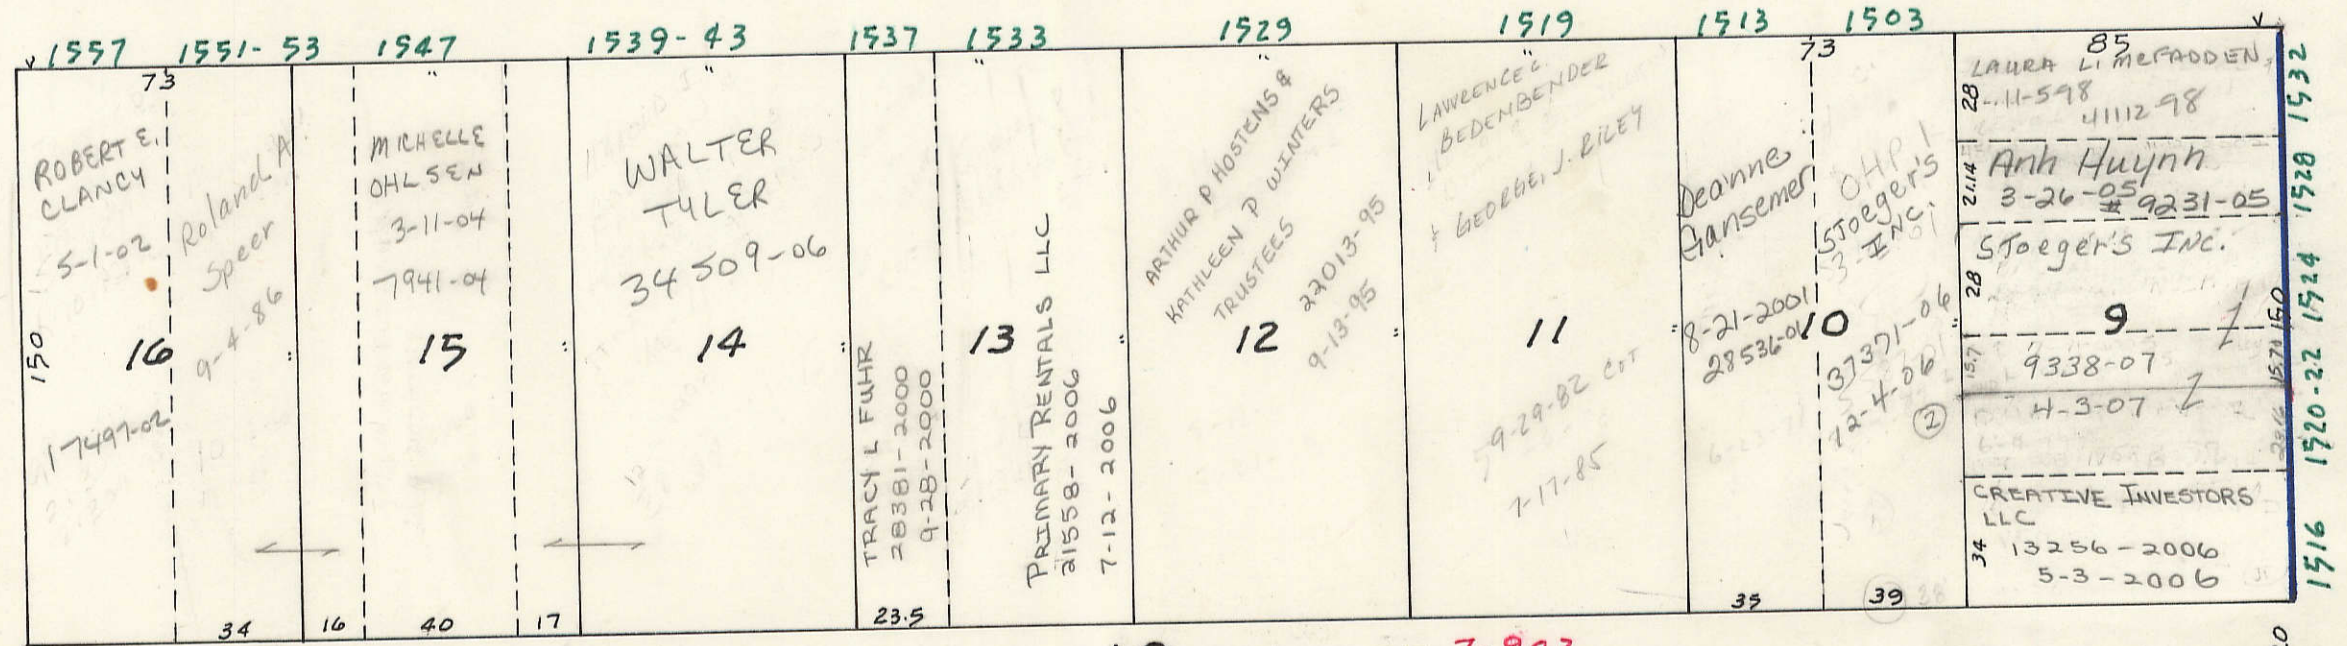 1557 1551-53 1547 1539-43 1537 1533 1529 1519 1513 1503
73
ROBERT E.
CLANCY
5-1-02
150
16
17497-02
Roland A
Speer
9-4-86
34
16
"
MICHELLE
OHLSEN
3-11-04
7941-04
15
40
17
"
WALTER
TYLER
34509-06
14
TRACY L FUHR
28381-2000
9-28-2000
23.5
"
13
PRIMARY RENTALS LLC
21558-2006
7-12-2006
"
ARTHUR P HOSTENS &
KATHLEEN P WINTERS
TRUSTEES
22013-95
9-13-95
12
"
LAWRENCE C.
BEDENBENDER
+ GEORGE J. RILEY
11
9-29-82 COT
7-17-85
73
Deanne
Gansemer
8-21-2001
28536-01
35
10
OHP 1
SToeger's
INC.
37371-06
12-4-06
2
39
38
85
LAURA L. McFADDEN
28
11-598
41112-98
21.14
Anh Huynh
3-26-05
# 9231-05
SToeger's INC.
28
9
150
15.71
15.71
9338-07
4-3-07
CREATIVE INVESTORS
LLC
34
13256-2006
5-3-2006
1532
1528
1524
1520-22
1516